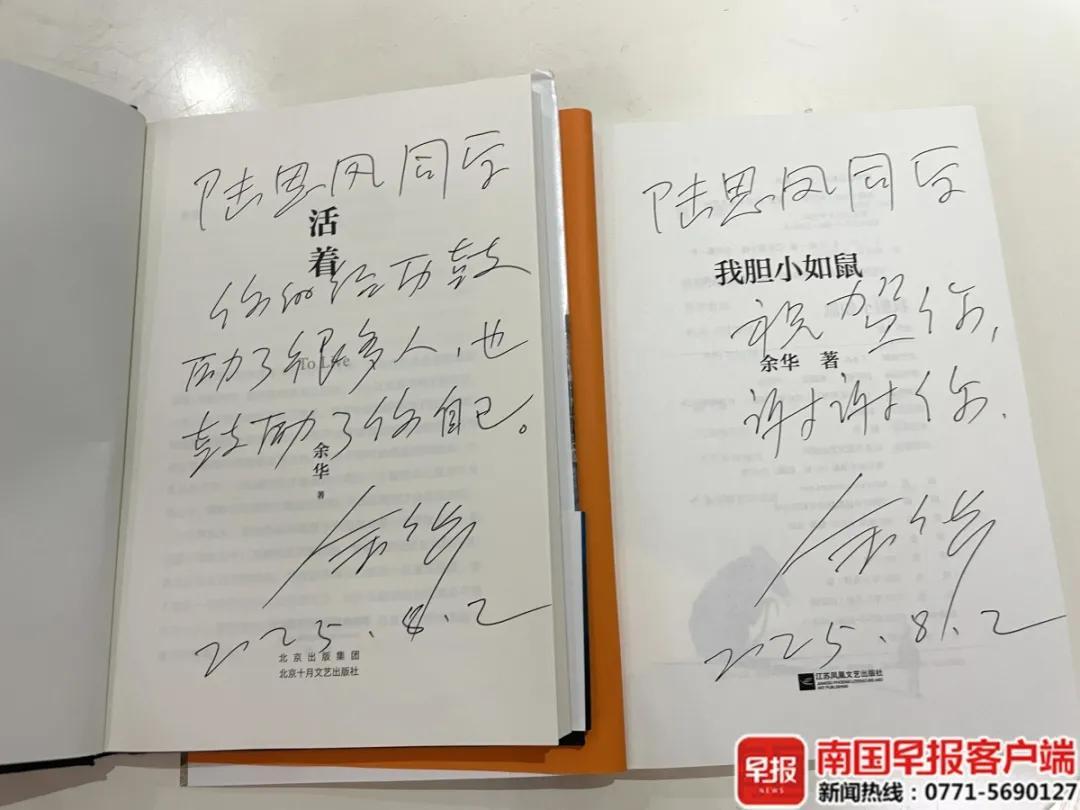 陆思凤同学
活
着
你的经历鼓
励了很多人，也
To Live
鼓励了你自己。
余
华
著
余华
2025.8.2
北京出版集团
北京十月文艺出版社
陆思凤同学
我胆小如鼠
祝贺你，
余华 著
谢谢你.
余华
2025.8.2
江苏凤凰文艺出版社
JIANGSU PHOENIX LITERATURE AND
ART PUBLISHING
早报
NEWS
南国早报客户端
新闻热线：0771-5690127